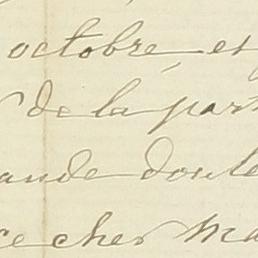 octobre, et
de la par
ande doule
ce cher Ma